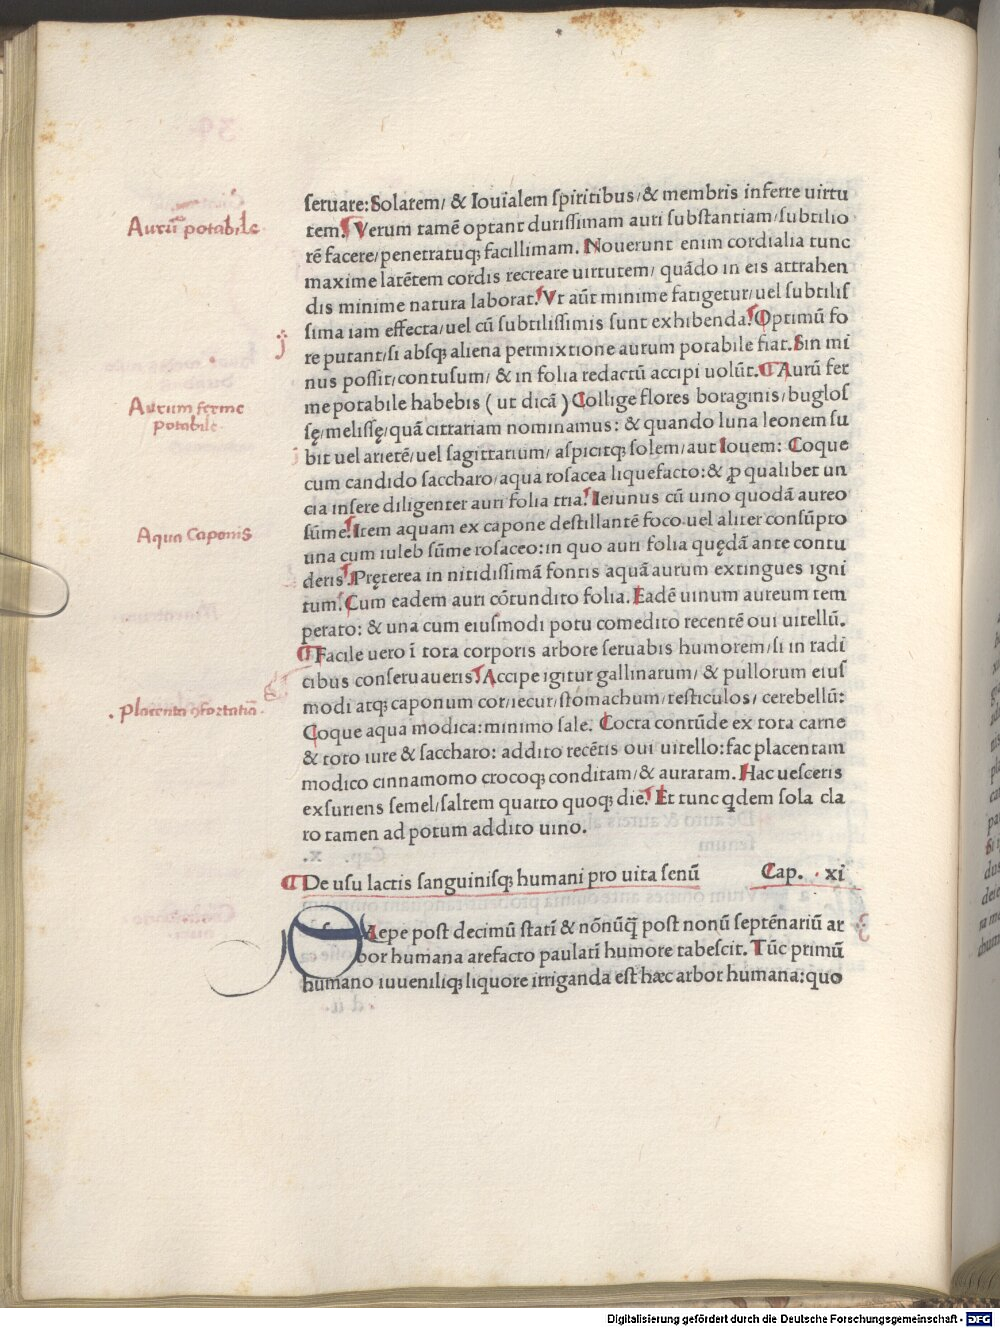 seruare: Solarem/ & Iouialem spiritibus/ & membris inferre uirtu
Aurũ potabile
tem. Verum tamẽ optant durissimam auri substantiam/subtilio
rẽ facere/penetratuqꝫ facillimam. Nouerunt enim cordialia tunc
maxime latẽtem cordis recreare uirtutem/ quãdo in eis attrahen
dis minime natura laborat. Vt aũt minime fatigetur/uel subtilis
sima iam effecta/uel cũ subtilissimis sunt exhibenda. Optimũ fo
re putant/si absqꝫ aliena permixtione aurum potabile fiat. Sin mi
nus possit/contusum/ & in folia redactũ accipi uolũt. Aurũ fer
Aurum ferme
potabile
me potabile habebis ( ut dicã ) Collige flores boraginis/buglos
sę/melissę/quã citrariam nominamus: & quando luna leonem su
bit uel arietẽ/uel sagittarium/ aspicitqꝫ solem/aut Iouem: Coque
cum candido saccharo/aqua rosacea liquefacto: & ꝓ qualibet un
cia insere diligenter auri folia tria. Ieiunus cũ uino quodã aureo
Aqua Caponis
sũme. Item aquam ex capone destillantẽ foco uel aliter consũpto
una cum iuleb sũme rosaceo: in quo auri folia quędã ante contu
deris. Pręterea in nitidissimã fontis aquã aurum extingues igni
tum. Cum eadem auri cõtundito folia. Eadẽ uinum aureum tem
perato: & una cum eiusmodi potu comedito recentẽ oui uitellũ.
Facile uero ĩ tota corporis arbore seruabis humorem/si in radi
cibus conseruaueris. Accipe igitur gallinarum/ & pullorum eius
Placenta ꝯfortatiua
modi atqꝫ caponum cor/iecur/stomachum/testiculos/ cerebellũ:
Coque aqua modica: minimo sale. Cocta contũde ex tota carne
& toto iure & saccharo: addito recẽtis oui uitello: fac placentam
modico cinnamomo crocoqꝫ conditam/ & auratam. Hac uesceris
exsuriens semel/saltem quarto quoqꝫ die. Et tunc qͥdem sola cla
ro tamen ad potum addito uino.
De usu lactis sanguinisqꝫ humani pro uita senũ Cap. xi
Saepe post decimũ statĩ & nõnũq̃ post nonũ septẽnariũ ar
bor humana arefacto paulatĩ humore tabescit. Tũc primũ
humano iuueniliqꝫ liquore irriganda est hæc arbor humana: quo
Digitalisierung gefördert durch die Deutsche Forschungsgemeinschaft - DFG